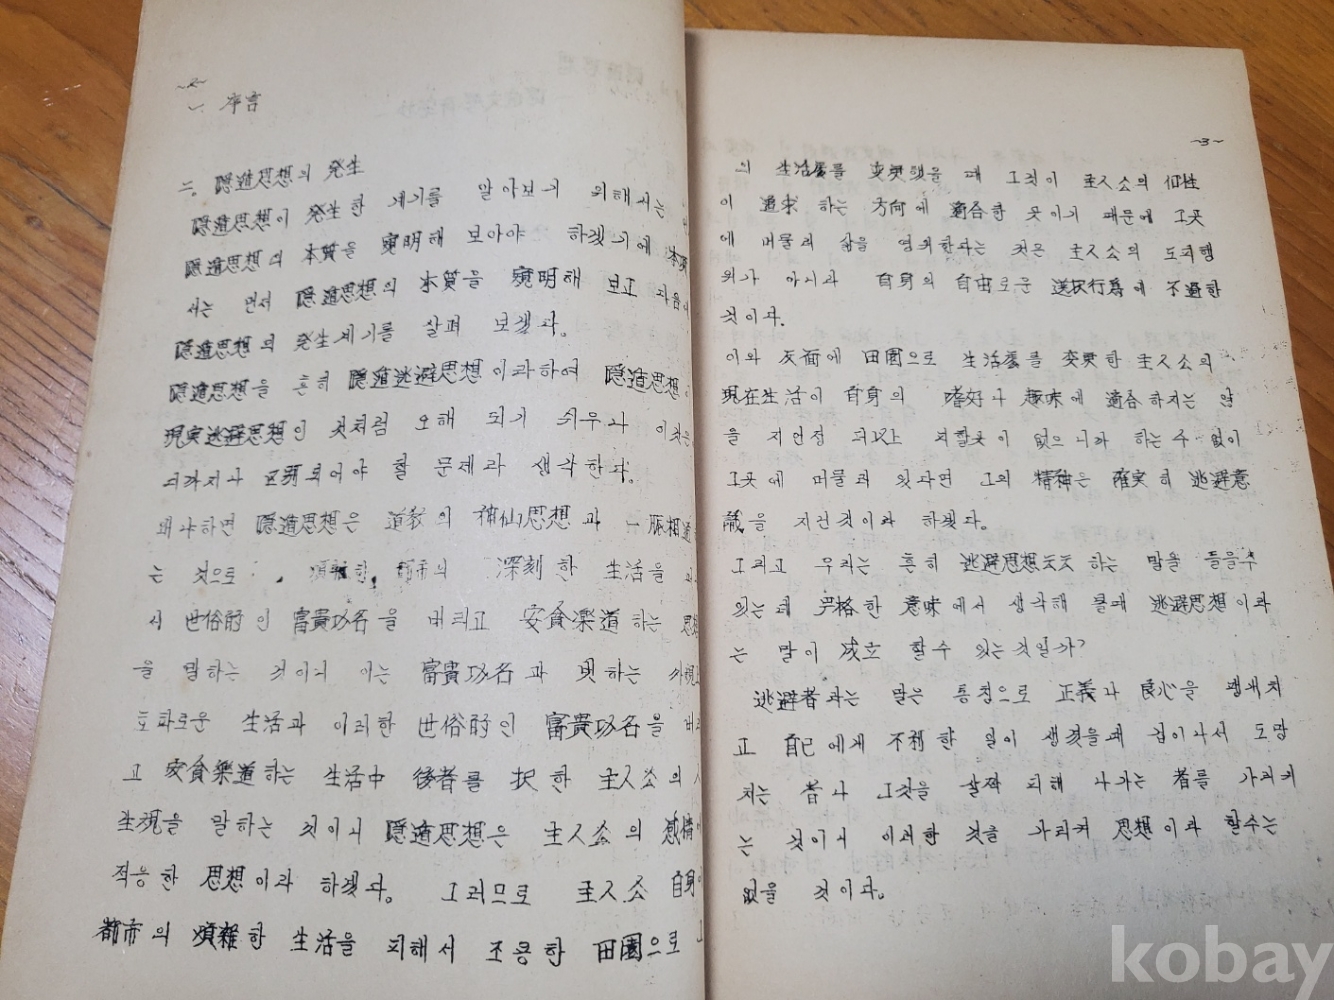 ~2~
一. 序言
二. 隠遁思想의 発生
隠遁思想이 発生한 계기를 알아보기 위해서는
隠遁思想의 本質을 究明해 보아야 하겠기에 本
서는 먼저 隠遁思想의 本質을 究明해 보고 다음에
隠遁思想의 発生계기를 살펴 보겠다.
隠遁思想을 흔히 隠遁逃避思想이라하여 隠遁思想
現実逃避思想인 것처럼 오해 되기 쉬우나 이것은
되어야 할 문제라 생각한다.
왜냐하면 隠遁思想은 道教의 神仙思想과 一脈相通
는 것으로 都市의 深刻한 生活을
서 世俗的인 富貴功名을 버리고 安貧樂道하는 思
을 말하는 것이니 이는 富貴功名과 벗하는 外
호화로운 生活과 이러한 世俗的인 富貴功名을 버리
고 安貧樂道하는 生活中 後者를 択한 主人公의 人
生観을 말하는 것이니 隠遁思想은 主人公의 感情에
적응한 思想이라 하겠다. 그러므로 主人公 自身이
都市의 煩雑한 生活을 피해서 조용한 田園으로 그
~3~
의 生活舞를 変更했을 때 그것이 主人公의 個性
이 追求 하는 方向에 適合한 곳이기 때문에 그곳
에 머물러 삶을 영위한다는 것은 主人公의 도피행
위가 아니라 自身의 自由로운 選択行為에 不過한
것이다.
이와 反面에 田園으로 生活舞를 変更한 主人公의
現在生活이 自身의 嗜好나 趣味에 適合하지는 않
을 지언정 피할곳이 없으니까 하는수 없이
그곳에 머물러 있다면 그의 精神은 確実히 逃避意
識을 지닌것이라 하겠다.
그리고 우리는 흔히 逃避思想云云하는 말을 들을수
있는데 严格한 意味에서 생각해 볼때 逃避思想이라
는 말이 成立 할수 있는것일까?
逃避者라는 말은 통칭으로 正義나 良心을 팽개치
고 自己에게 不利한 일이 생겼을때 겁이나서 도망
치는 者나 그것을 살짝 피해 나가는 者를 가리키
는 것이니 이러한 것을 가리켜 思想이라 할수는
없을 것이다.
kobay